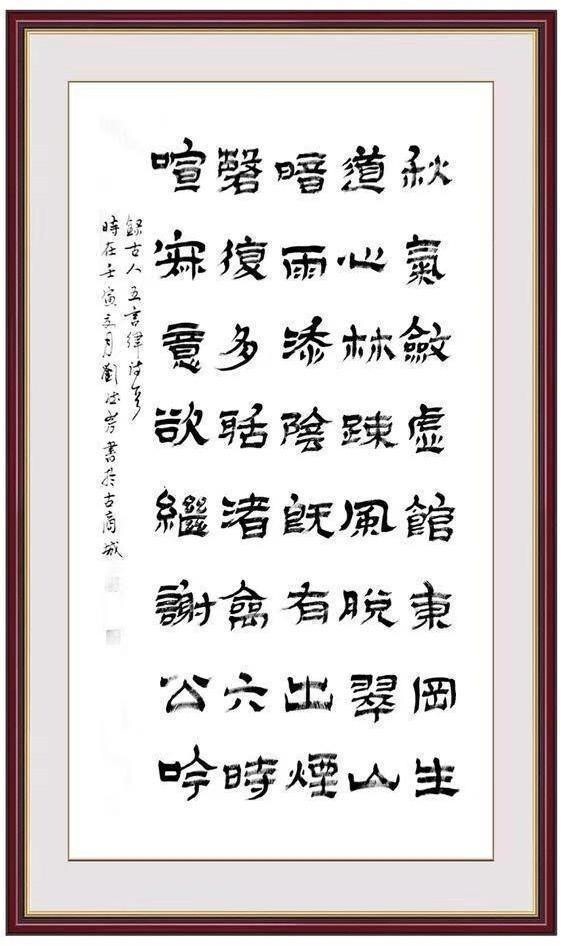 秋氣斂虛館東岡生
道心林疎風脫翠山
暗雨添陰既有出煙
磬復多聒渚禽六時
喧寂意欲繼謝公吟
錄古人五言律詩
時在壬寅月劉書於古商城